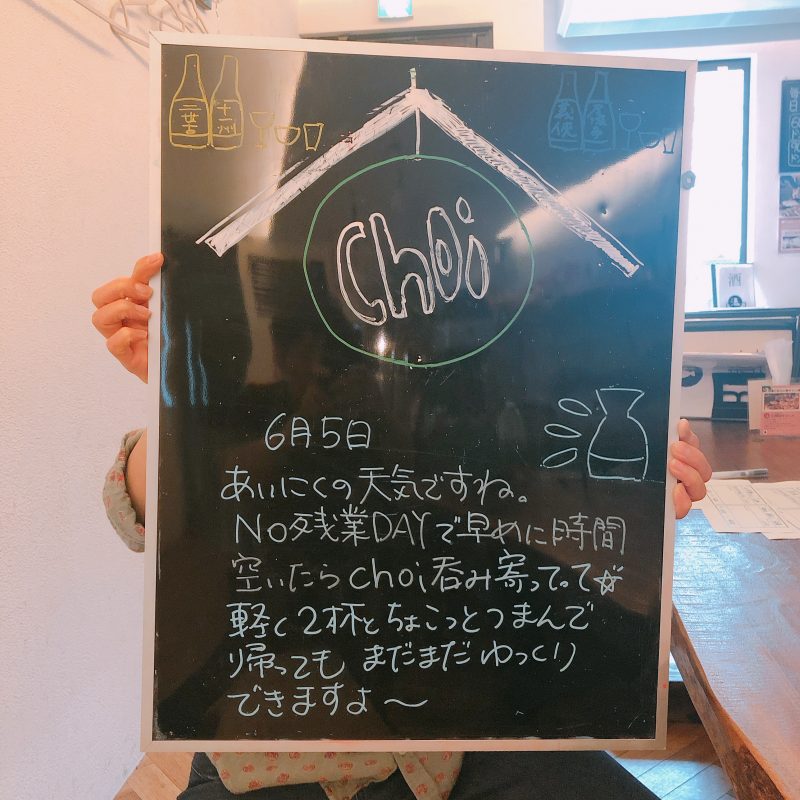 十一州
Choi
6月5日
あいにくの天気ですね。
NO残業DAYで早めに時間
空いたらchoi呑み寄ってって☆
軽く2杯とちょこっとつまんで
帰っても まだまだ ゆっくり
できますよ〜
酒